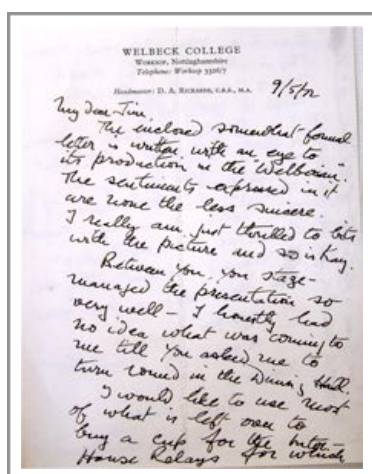 WELBECK COLLEGE
WORKSOP, Nottinghamshire
Telephone: Worksop 3326/7
Headmaster: D. A. RICKARDS, C.B.E., M.A.
9/5/72
My dear Jim,
The enclosed somewhat formal
letter is written with an eye to
its production in the "Welbeckian".
The sentiments expressed in it
are none the less sincere.
I really am just thrilled to bits
with the picture and so is Kay.
Between you, you stage-
managed the presentation so
very well – I honestly had
no idea what was coming to
me till you asked me to
turn round in the Dining Hall.
I would like to use most
of what is left over to
buy a cup for the Inter-
House Relays for which